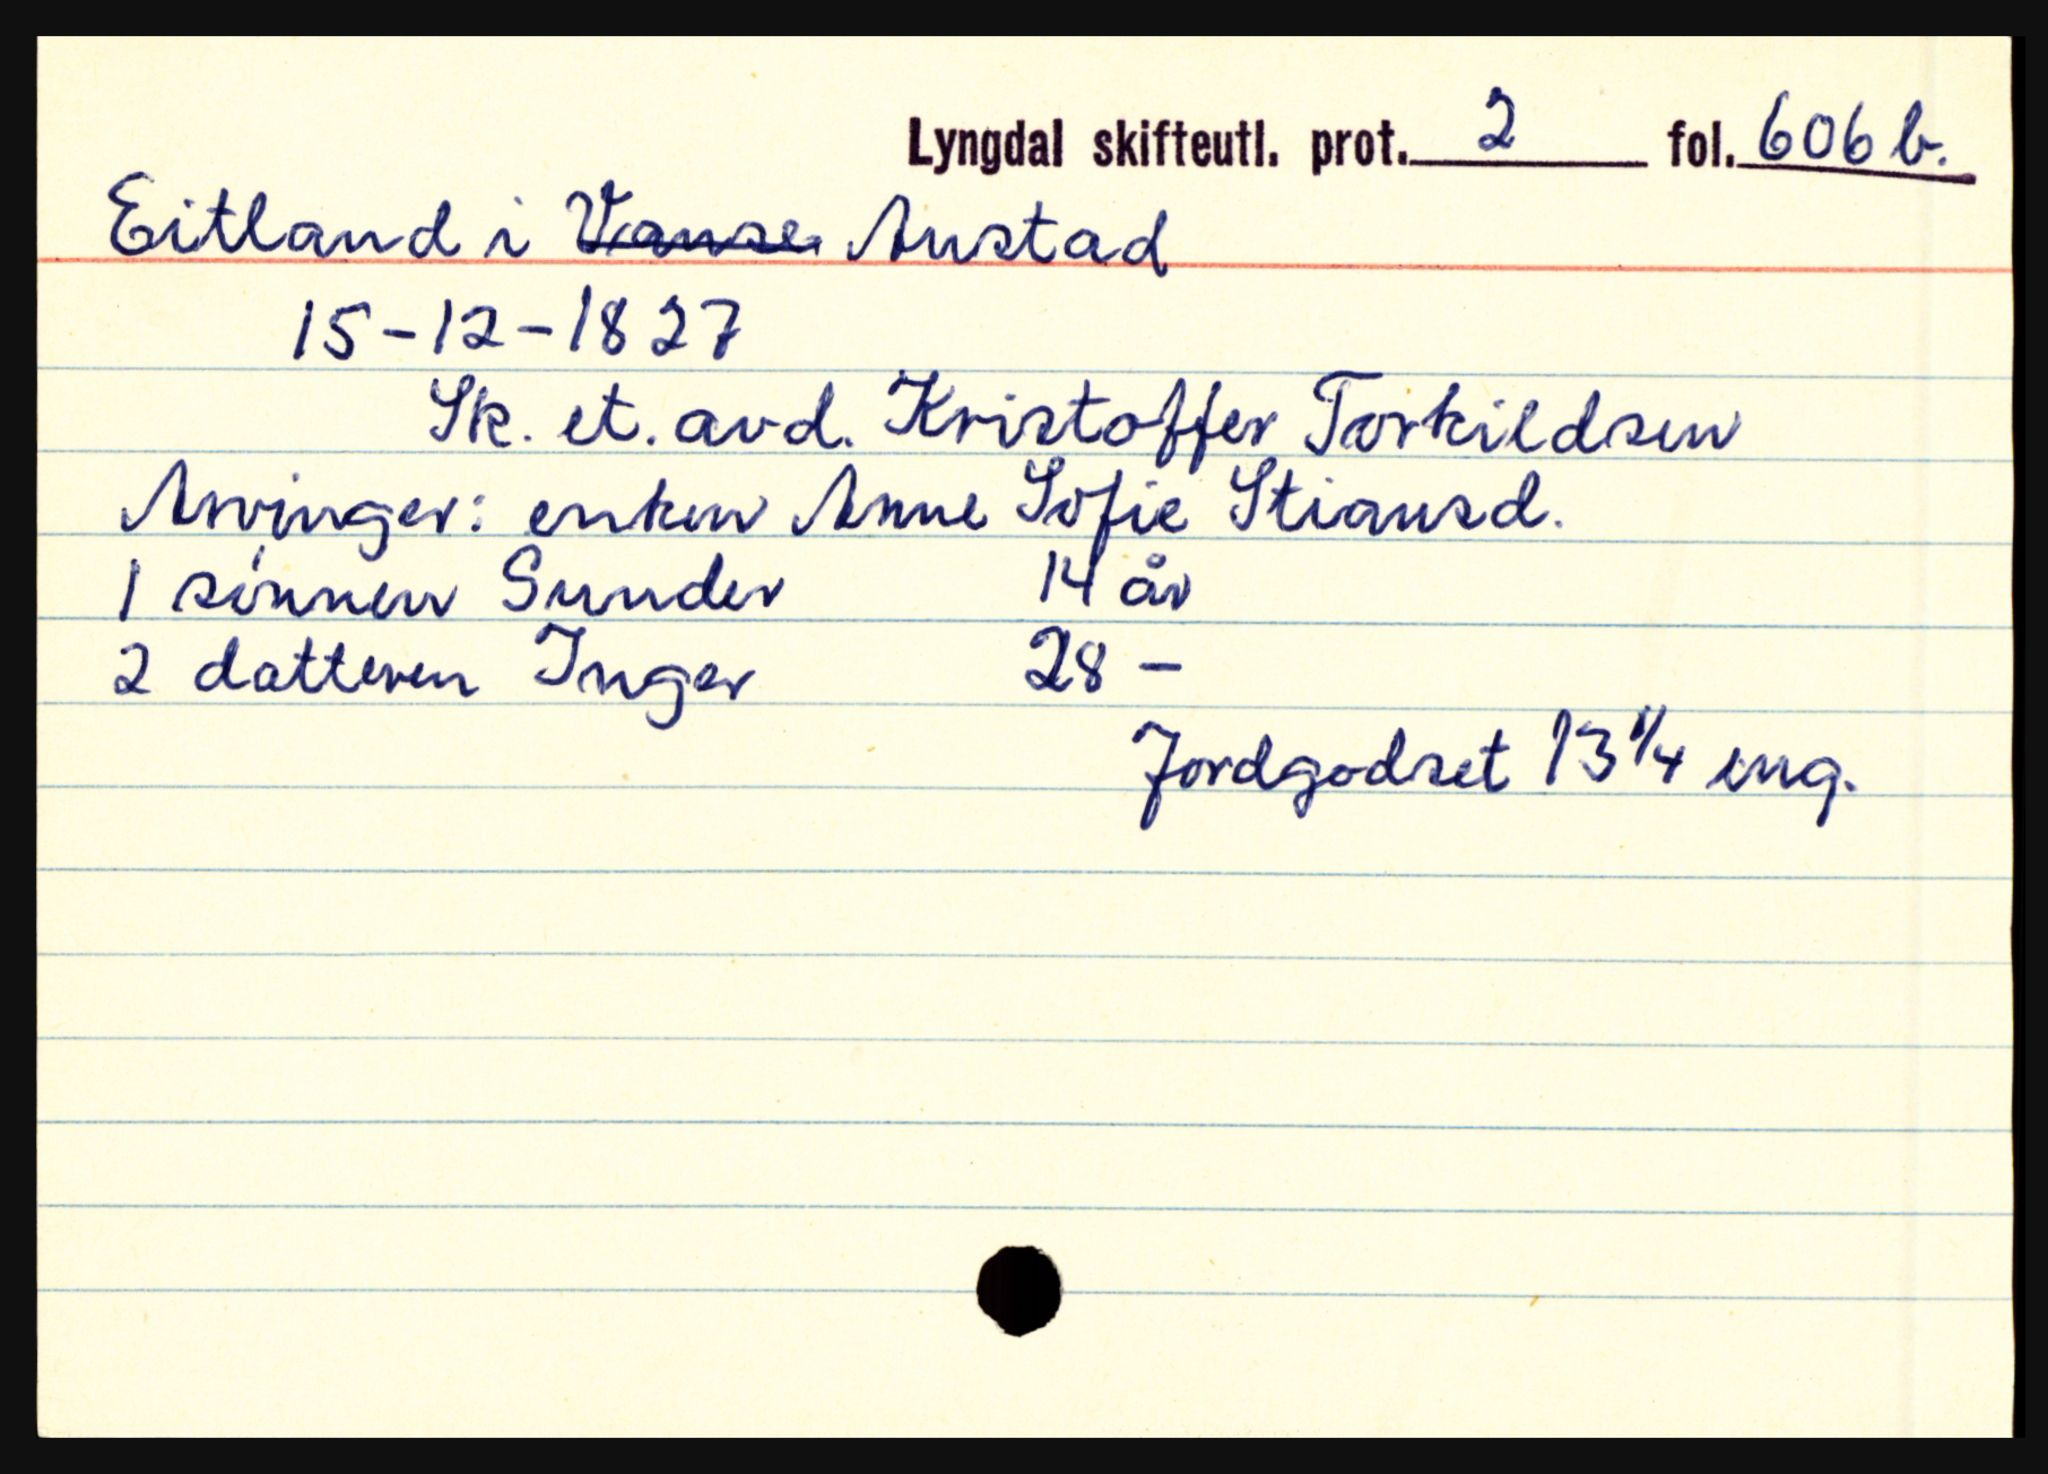 Lyngdal skifteutl. prot. 2 fol. 606 b.
Eitland i Vanse Austad
15-12-1827
Sk. et. avd. Kristoffer Torkildsen
Arvinger: enken Anne Sofie Stiansd.
1 sønnen Sunder 14 år
2 datteren Inger 28 -
Jordgodset 13 1/4 eng.